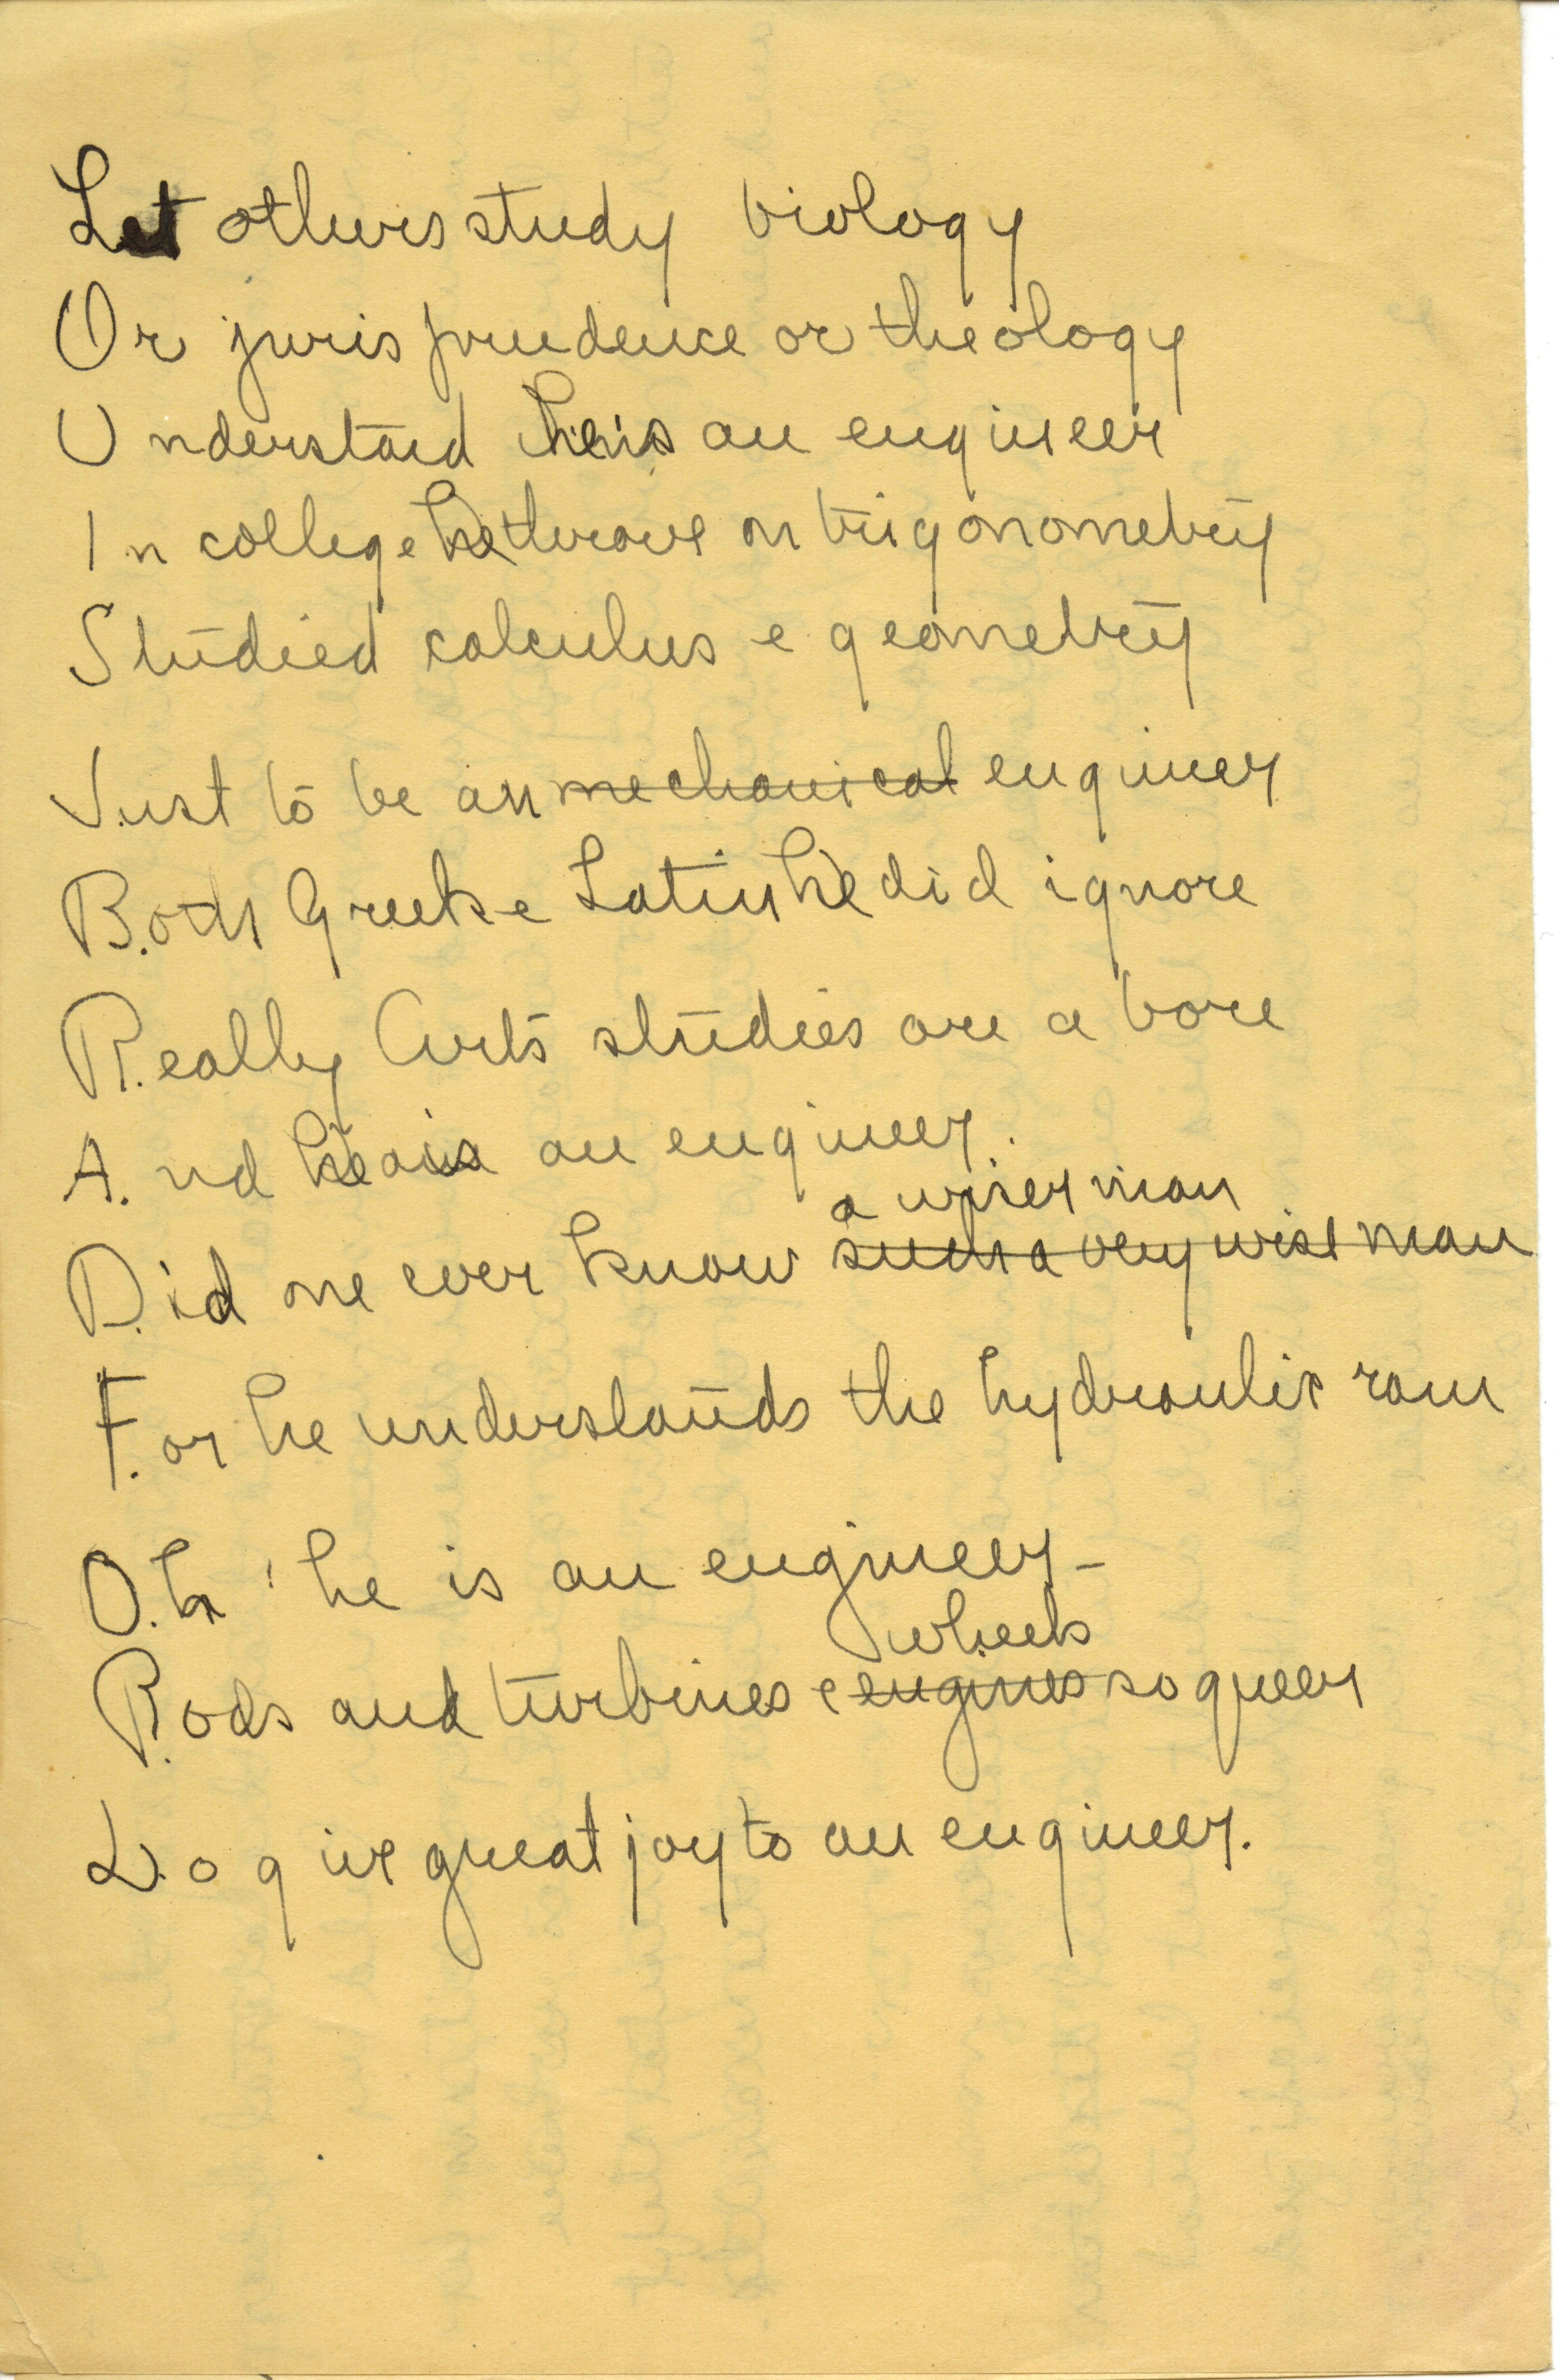 Let others study biology
Or jurisprudence or theology
Understand he is an engineer
In college he throve on trigonometry
Studied calculus & geometry
Just to be an mechanical engineer
B.oth Greek & Latin he did ignore
R.eally Arts studies are a bore
A.nd he is an engineer.
a wiser man
D.id one ever know such a very wise man
F.or he understands the hydraulic ram
O.h! he is an engineer –
wheels
R.ods and turbines & engines so queer
D.o give great joy to an engineer.